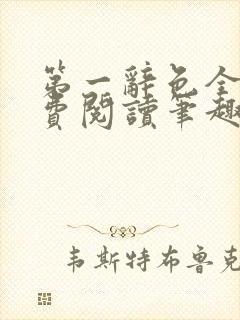 第一辭色全
費閱讀筆趣
韦斯特布鲁克